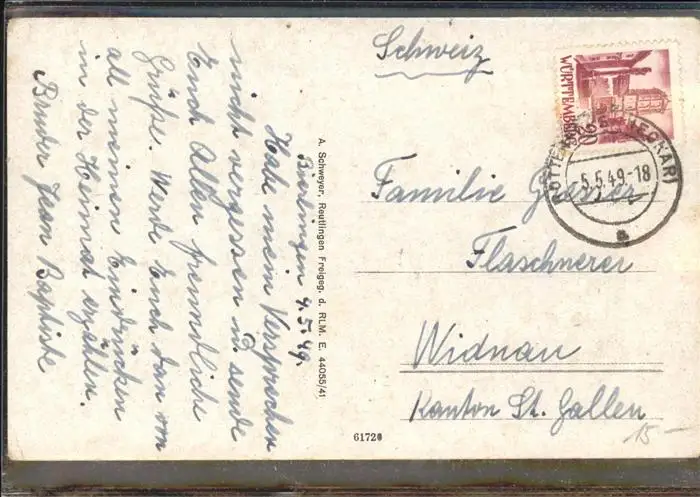 Bierlingen 4.5.49.
Habe mein Versprechen
nicht vergessen u. sende
Euch Allen freundliche
Grüße. Werde Euch dan von
all meinen Eindrücken
in der Heimat erzählen.
Bruder Jean Baptiste
A. Schweyer, Reutlingen Freigeg. d. RLM. E. 44055/41
61720
Schweiz
WÜRTTEMBERG
20
ROTTENBURG (NECKAR)
-5.5.49-18
a
Familie
Flaschnerei
Widnau
Kanton St. Gallen
15-